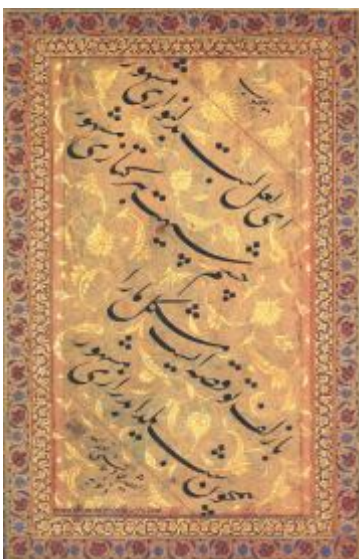 ای لعل لبت بدلنوازی مشهور
چشم بترکتازی مشهور
با زلف تو قصه ایست مشکل ما را
همچون شب یلدا بدرازی مشهور